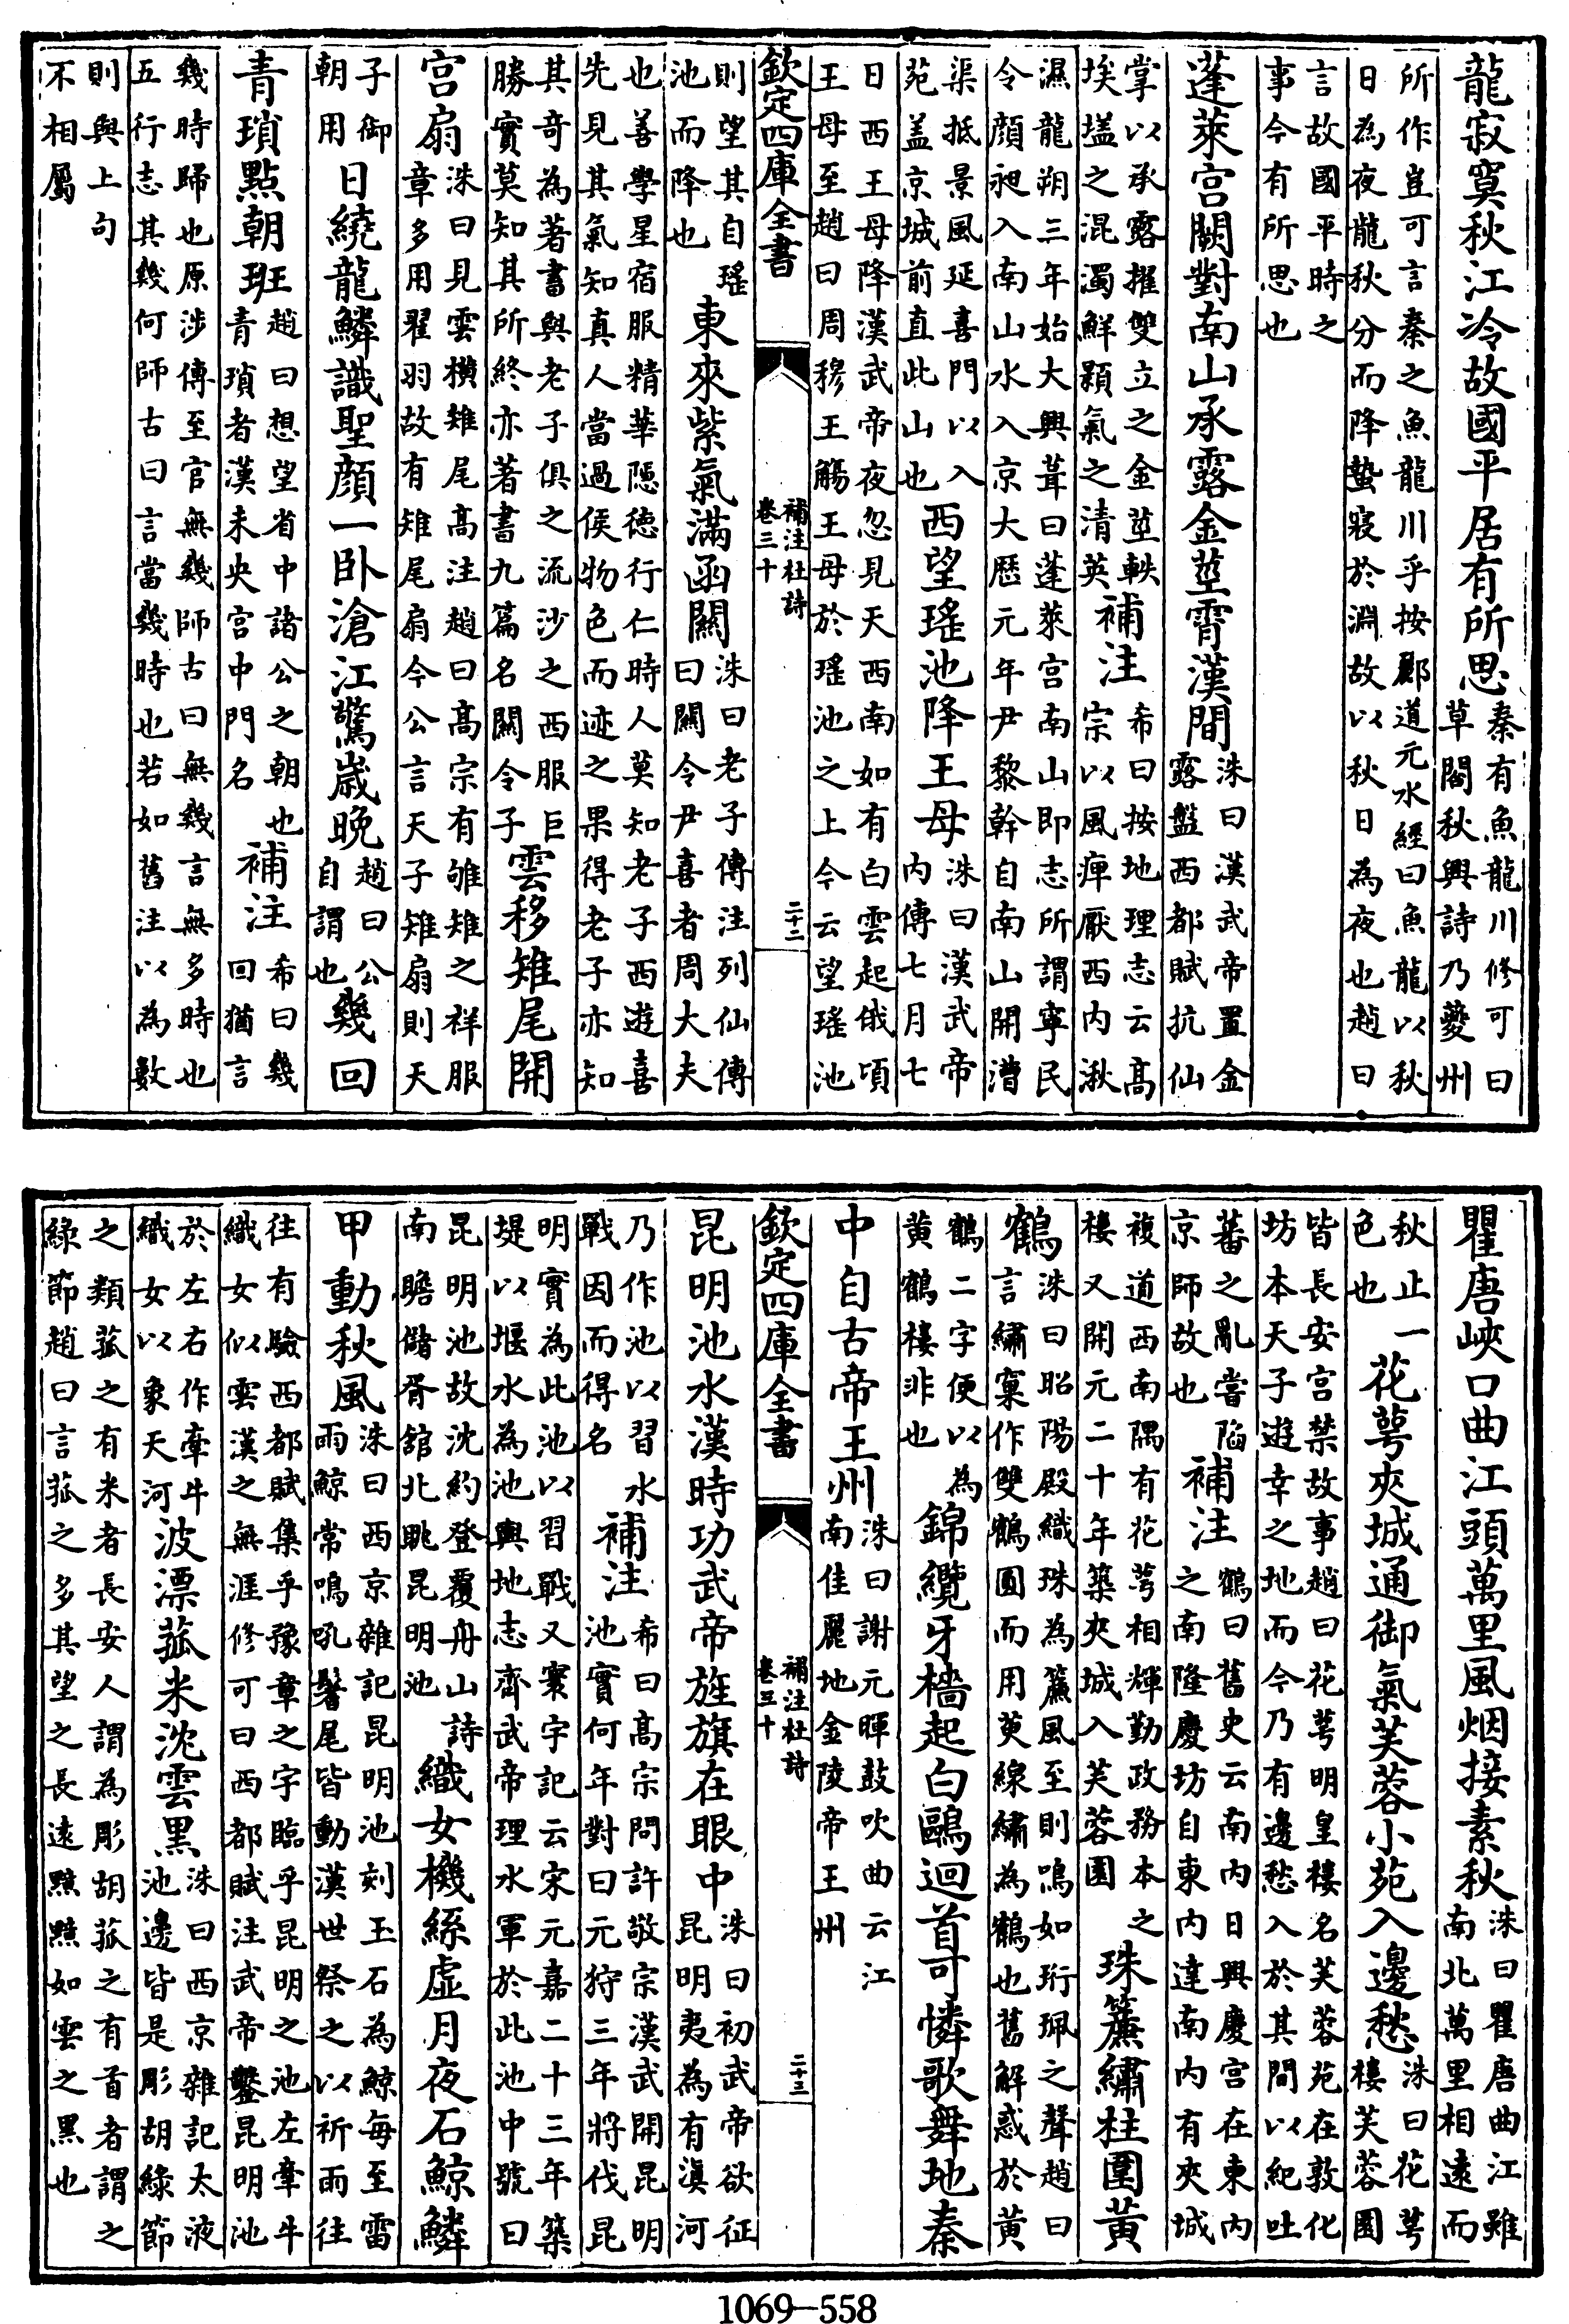 龍寂寞秋江冷故國平居有所思秦有魚龍川修可曰草閣秋興詩乃夔州
所作豈可言秦之魚龍川乎按酈道元水經曰魚龍以秋日為夜龍秋分而降蟄寢於淵故以秋日為夜也趙曰
言故國平時之事今有所思也
蓬萊宮闕對南山承露金莖霄漢間洙曰漢武帝置金露盤西都賦抗仙
掌以承露擢雙立之金莖軼埃壒之混濁鮮顥氣之清英補注希曰按地理志云高宗以風痺厭西内湫
濕龍朔三年始大興葺曰蓬萊宮南山即志所謂寧民令顔昶入南山水入京大厯元年尹黎幹自南山開漕
渠抵景風延喜門以入苑盖京城前直此山也西望瑤池降王母洙曰漢武帝内傳七月七
日西王母降漢武帝夜忽見天西南如有白雲起俄頃王母至趙曰周穆王觴王母於瑤池之上今云望瑤池
欽定四庫全書 補注杜詩卷三十 二十二
則望其自瑤池而降也東來紫氣滿函關洙曰老子傳注列仙傳曰關令尹喜者周大夫
也善學星宿服精華隠徳行仁時人莫知老子西遊喜先見其氣知真人當過侯物色而迹之果得老子亦知
其奇為著書與老子俱之流沙之西服巨勝實莫知其所終亦著書九篇名關令子雲移雉尾開
宫扇洙曰見雲横雉尾髙注趙曰髙宗有雊雉之祥服章多用翟羽故有雉尾扇今公言天子雉扇則天
子御朝用日繞龍鱗識聖顔一卧滄江驚嵗晚趙曰公自謂也幾回
青瑣點朝班趙曰想望省中諸公之朝也青瑣者漢未央宫中門名補注希曰幾回猶言
幾時歸也原涉傳至官無幾師古曰無幾言無多時也五行志其幾何師古曰言當幾時也若如舊注以為數
則與上句不相屬
瞿唐峽口曲江頭萬里風烟接素秋洙曰瞿唐曲江雖南北萬里相逺而
秋止一色也花萼夾城通御氣芙蓉小苑入邊愁洙曰花萼樓芙蓉園
皆長安宫禁故事趙曰花萼明皇樓名芙蓉苑在敦化坊本天子遊幸之地而今乃有邊愁入於其間以紀吐
蕃之亂嘗陷京師故也補注鶴曰舊史云南内日興慶宫在東内之南隆慶坊自東内達南内有夾城
複道西南隅有花萼相輝勤政務本之樓又開元二十年築夾城入芙蓉園珠簾繡柱圍黄
鶴洙曰昭陽殿織珠為簾風至則鳴如珩珮之聲趙曰言繡窠作雙鶴圓而用萸線繡為鶴也舊解惑於黄
鶴二字便以為黄鶴樓非也錦纜牙檣起白鷗迴首可憐歌舞地秦
中自古帝王州洙曰謝元暉鼓吹曲云江南佳麗地金陵帝王州
欽定四庫全書 補注杜詩卷三十 二十三
昆明池水漢時功武帝旌旗在眼中洙曰初武帝欲征昆明夷為有滇河
乃作池以習水戰因而得名補注希曰高宗問許敬宗漢武開昆明池實何年對曰元狩三年將伐昆
明實為此池以習戰又寰宇記云宋元嘉二十三年築堤以堰水為池輿地志齊武帝理水軍於此池中號曰
昆明池故沈約登覆舟山詩南瞻儲胥舘北眺昆明池織女機絲虚月夜石鯨鱗
甲動秋風洙曰西京雜記昆明池刻玉石為鯨每至雷雨鯨常鳴吼鬐尾皆動漢世祭之以祈雨往
往有驗西都賦集乎豫章之宇臨乎昆明之池左牽牛織女似雲漢之無涯修可曰西都賦注武帝鑿昆明池
於左右作牽牛織女以象天河波漂菰米沈雲黒洙曰西京雜記太液池邊皆是彫胡緑節
之類菰之有米者長安人謂為彫胡菰之有首者謂之緑節趙曰言菰之多其望之長逺黯黯如雲之黒也
1069—558